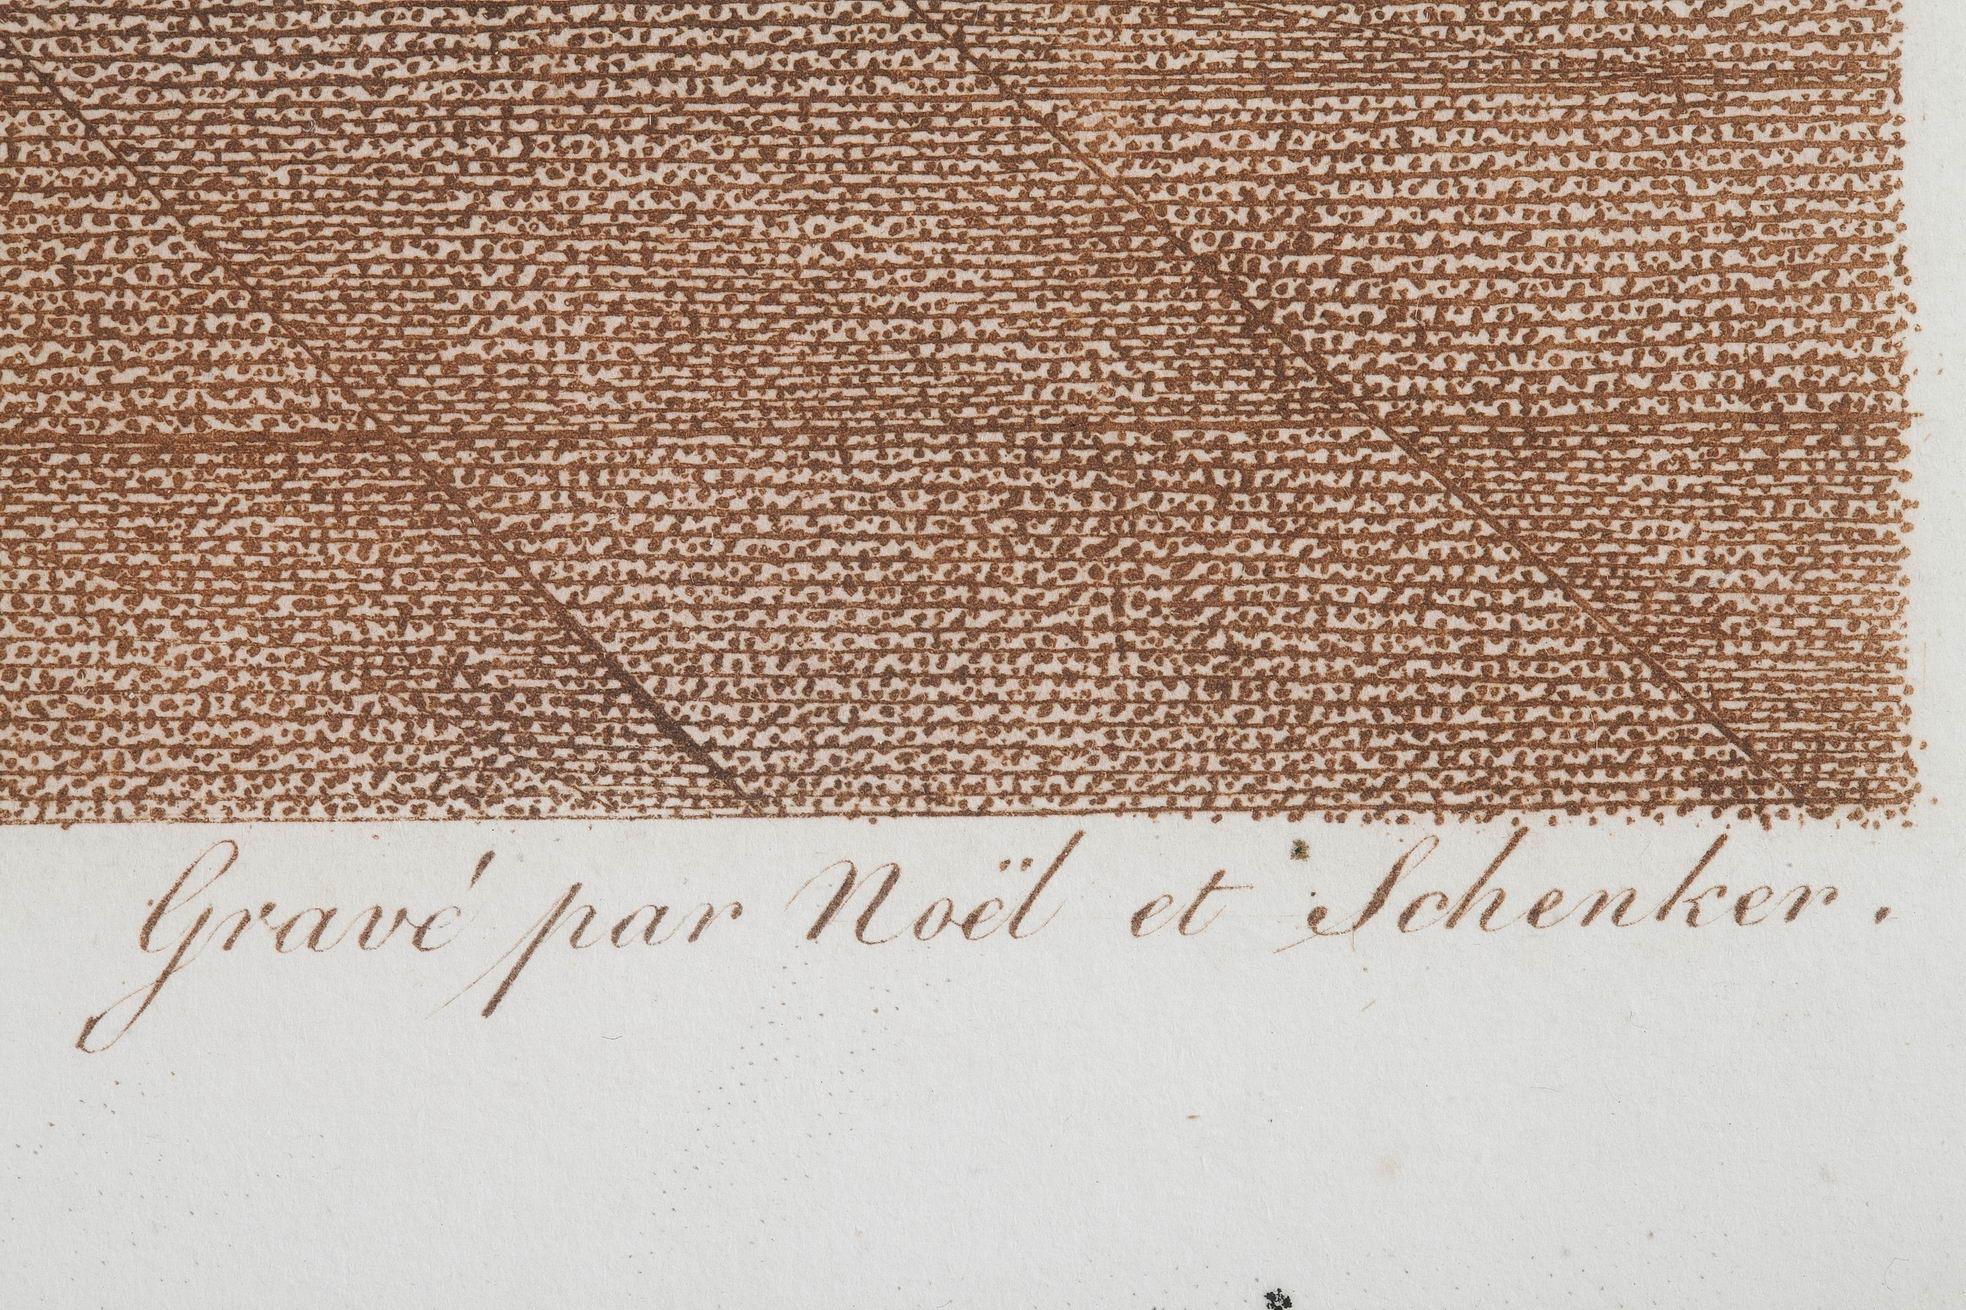 Gravé par Noël et Schenker.